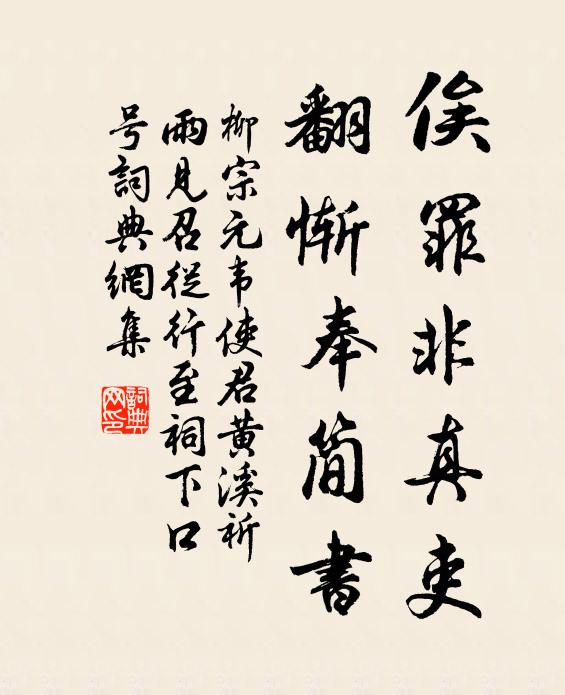 俟罪非真吏
翻惭奉简書
柳宗元韦使君黄溪祈
雨見召従行至祠下口
号詞典網集
詞典
网印